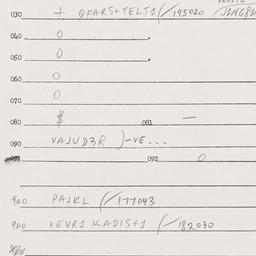 030 + QFARS+TELT1(/195020
040 0
050 0
060 0
070 0
080 $ 081 —
090 VAJUD3R )-VE...
092 0
900 PAJKL (/177043
900 KEVR1 KADIS+1 (/182030